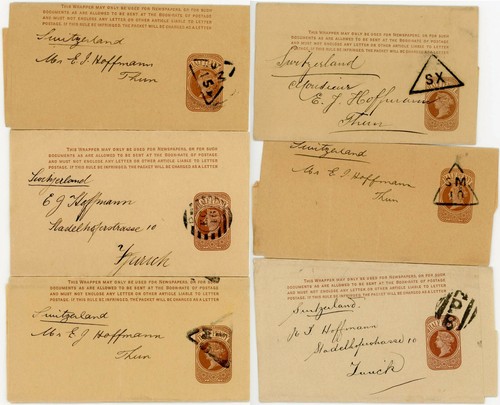 DOCUMENTS AS ARE ALLOWED TO BE SENT AT THE BOOK-RATE OF
POSTAGE, AND MUST NOT ENCLOSE ANY LETTER OR OTHER ARTICLE LIABLE TO LETTER
POSTAGE. IF THIS RULE BE INFRINGED, THE PACKET WILL BE CHARGED AS A LETTER
Switzerland
Mr E. J. Hoffmann
Thun
THIS WRAPPER MAY ONLY BE USED FOR NEWSPAPERS, OR FOR SUCH
DOCUMENTS AS ARE ALLOWED TO BE SENT AT THE BOOK-RATE OF
POSTAGE, AND MUST NOT ENCLOSE ANY LETTER OR OTHER ARTICLE LIABLE TO LETTER
POSTAGE. IF THIS RULE BE INFRINGED, THE PACKET WILL BE CHARGED AS A LETTER
Switzerland
E J Hoffmann
Stadelhoferstrasse 10
Zurich
THIS WRAPPER MAY ONLY BE USED FOR NEWSPAPERS, OR FOR SUCH
DOCUMENTS AS ARE ALLOWED TO BE SENT AT THE BOOK-RATE OF
POSTAGE, AND MUST NOT ENCLOSE ANY LETTER OR OTHER ARTICLE LIABLE TO LETTER
POSTAGE. IF THIS RULE BE INFRINGED, THE PACKET WILL BE CHARGED AS A LETTER
Switzerland
Mr E. J. Hoffmann
Thun
THIS WRAPPER MAY ONLY BE USED FOR NEWSPAPERS, OR FOR SUCH
DOCUMENTS AS ARE ALLOWED TO BE SENT AT THE BOOK-RATE OF
POSTAGE, AND MUST NOT ENCLOSE ANY LETTER OR OTHER ARTICLE LIABLE TO LETTER
POSTAGE. IF THIS RULE BE INFRINGED, THE PACKET WILL BE CHARGED AS A LETTER
Switzerland
Monsieur
E. J. Hoffmann
Thun
SX
THIS WRAPPER MAY ONLY BE USED FOR NEWSPAPERS, OR FOR SUCH
DOCUMENTS AS ARE ALLOWED TO BE SENT AT THE BOOK-RATE OF
POSTAGE, AND MUST NOT ENCLOSE ANY LETTER OR OTHER ARTICLE LIABLE TO LETTER
POSTAGE. IF THIS RULE BE INFRINGED, THE PACKET WILL BE CHARGED AS A LETTER
Switzerland
Mr E. J. Hoffmann
Thun
SM
10
THIS WRAPPER MAY ONLY BE USED FOR NEWSPAPERS, OR FOR SUCH
DOCUMENTS AS ARE ALLOWED TO BE SENT AT THE BOOK-RATE OF
POSTAGE, AND MUST NOT ENCLOSE ANY LETTER OR OTHER ARTICLE LIABLE TO LETTER
POSTAGE. IF THIS RULE BE INFRINGED, THE PACKET WILL BE CHARGED AS A LETTER
Switzerland
Hoffmann
Stadelhoferstrasse 10
Zurich